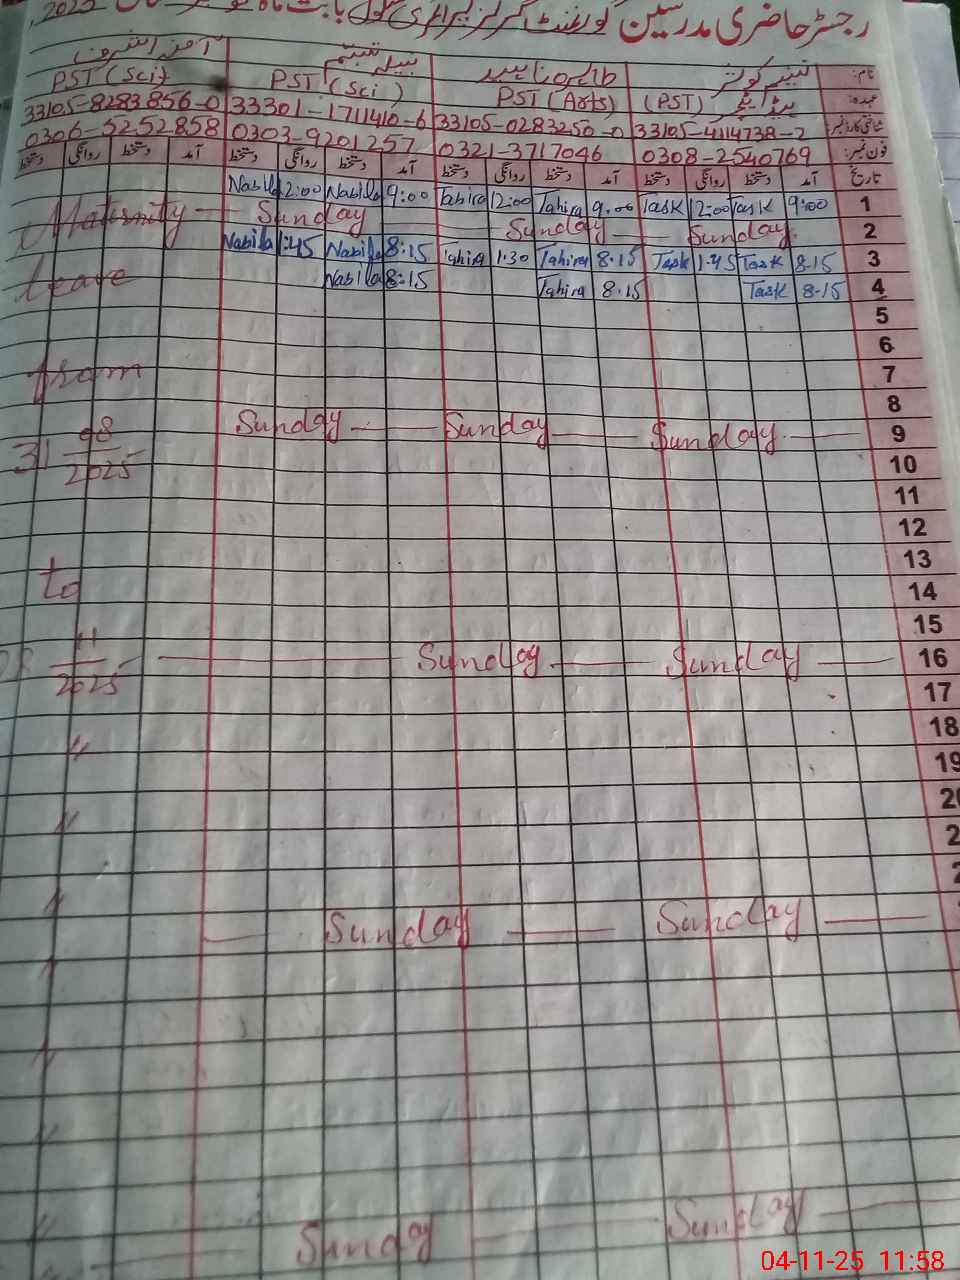 رجسٹر حاضری مدرسین گورنمنٹ گرلز پرائمری سکول بابت ماہ 2025ء
نام: تسنیم کوثر طاہرہ ناہید نبیلہ تبسم آمنہ اشرف
عہدہ: ہیڈ ٹیچر (PST) PST (Arts) PST (Sci) PST (Sci)
شناختی کارڈ نمبر 33105-4114738-2 33105-0283250-0 33301-1711410-6 33105-8283856-0
فون نمبر: 0308-2540769 0321-3717046 0303-9201257 0306-5252858
تاریخ آمد دستخط روانگی دستخط آمد دستخط روانگی دستخط آمد دستخط روانگی دستخط آمد دستخط روانگی دستخط
Nabila 2:00 Nabila 9:00 Tahira 12:00 Tahira 9.00 Task 12:00 Task 9:00 1
Maternity — Sunday Sunday — Sunday. 2
Nabila 1:45 Nabila 8:15 Tahira 1.30 Tahira 8.15 Task 1:45 Task 8.15 3
Leave Nabila 8:15 Tahira 8.15 Task 8.15 4
5
6
from 7
8
Sunday — Sunday — Sunday. — 9
31 08/2025 10
11
12
13
to 14
15
11/2025 — Sunday — Sunday — 16
17
" 18
19
"
"
— Sunday — Sunday —
"
"
"
" Sunday — Sunday —
04-11-25 11:58